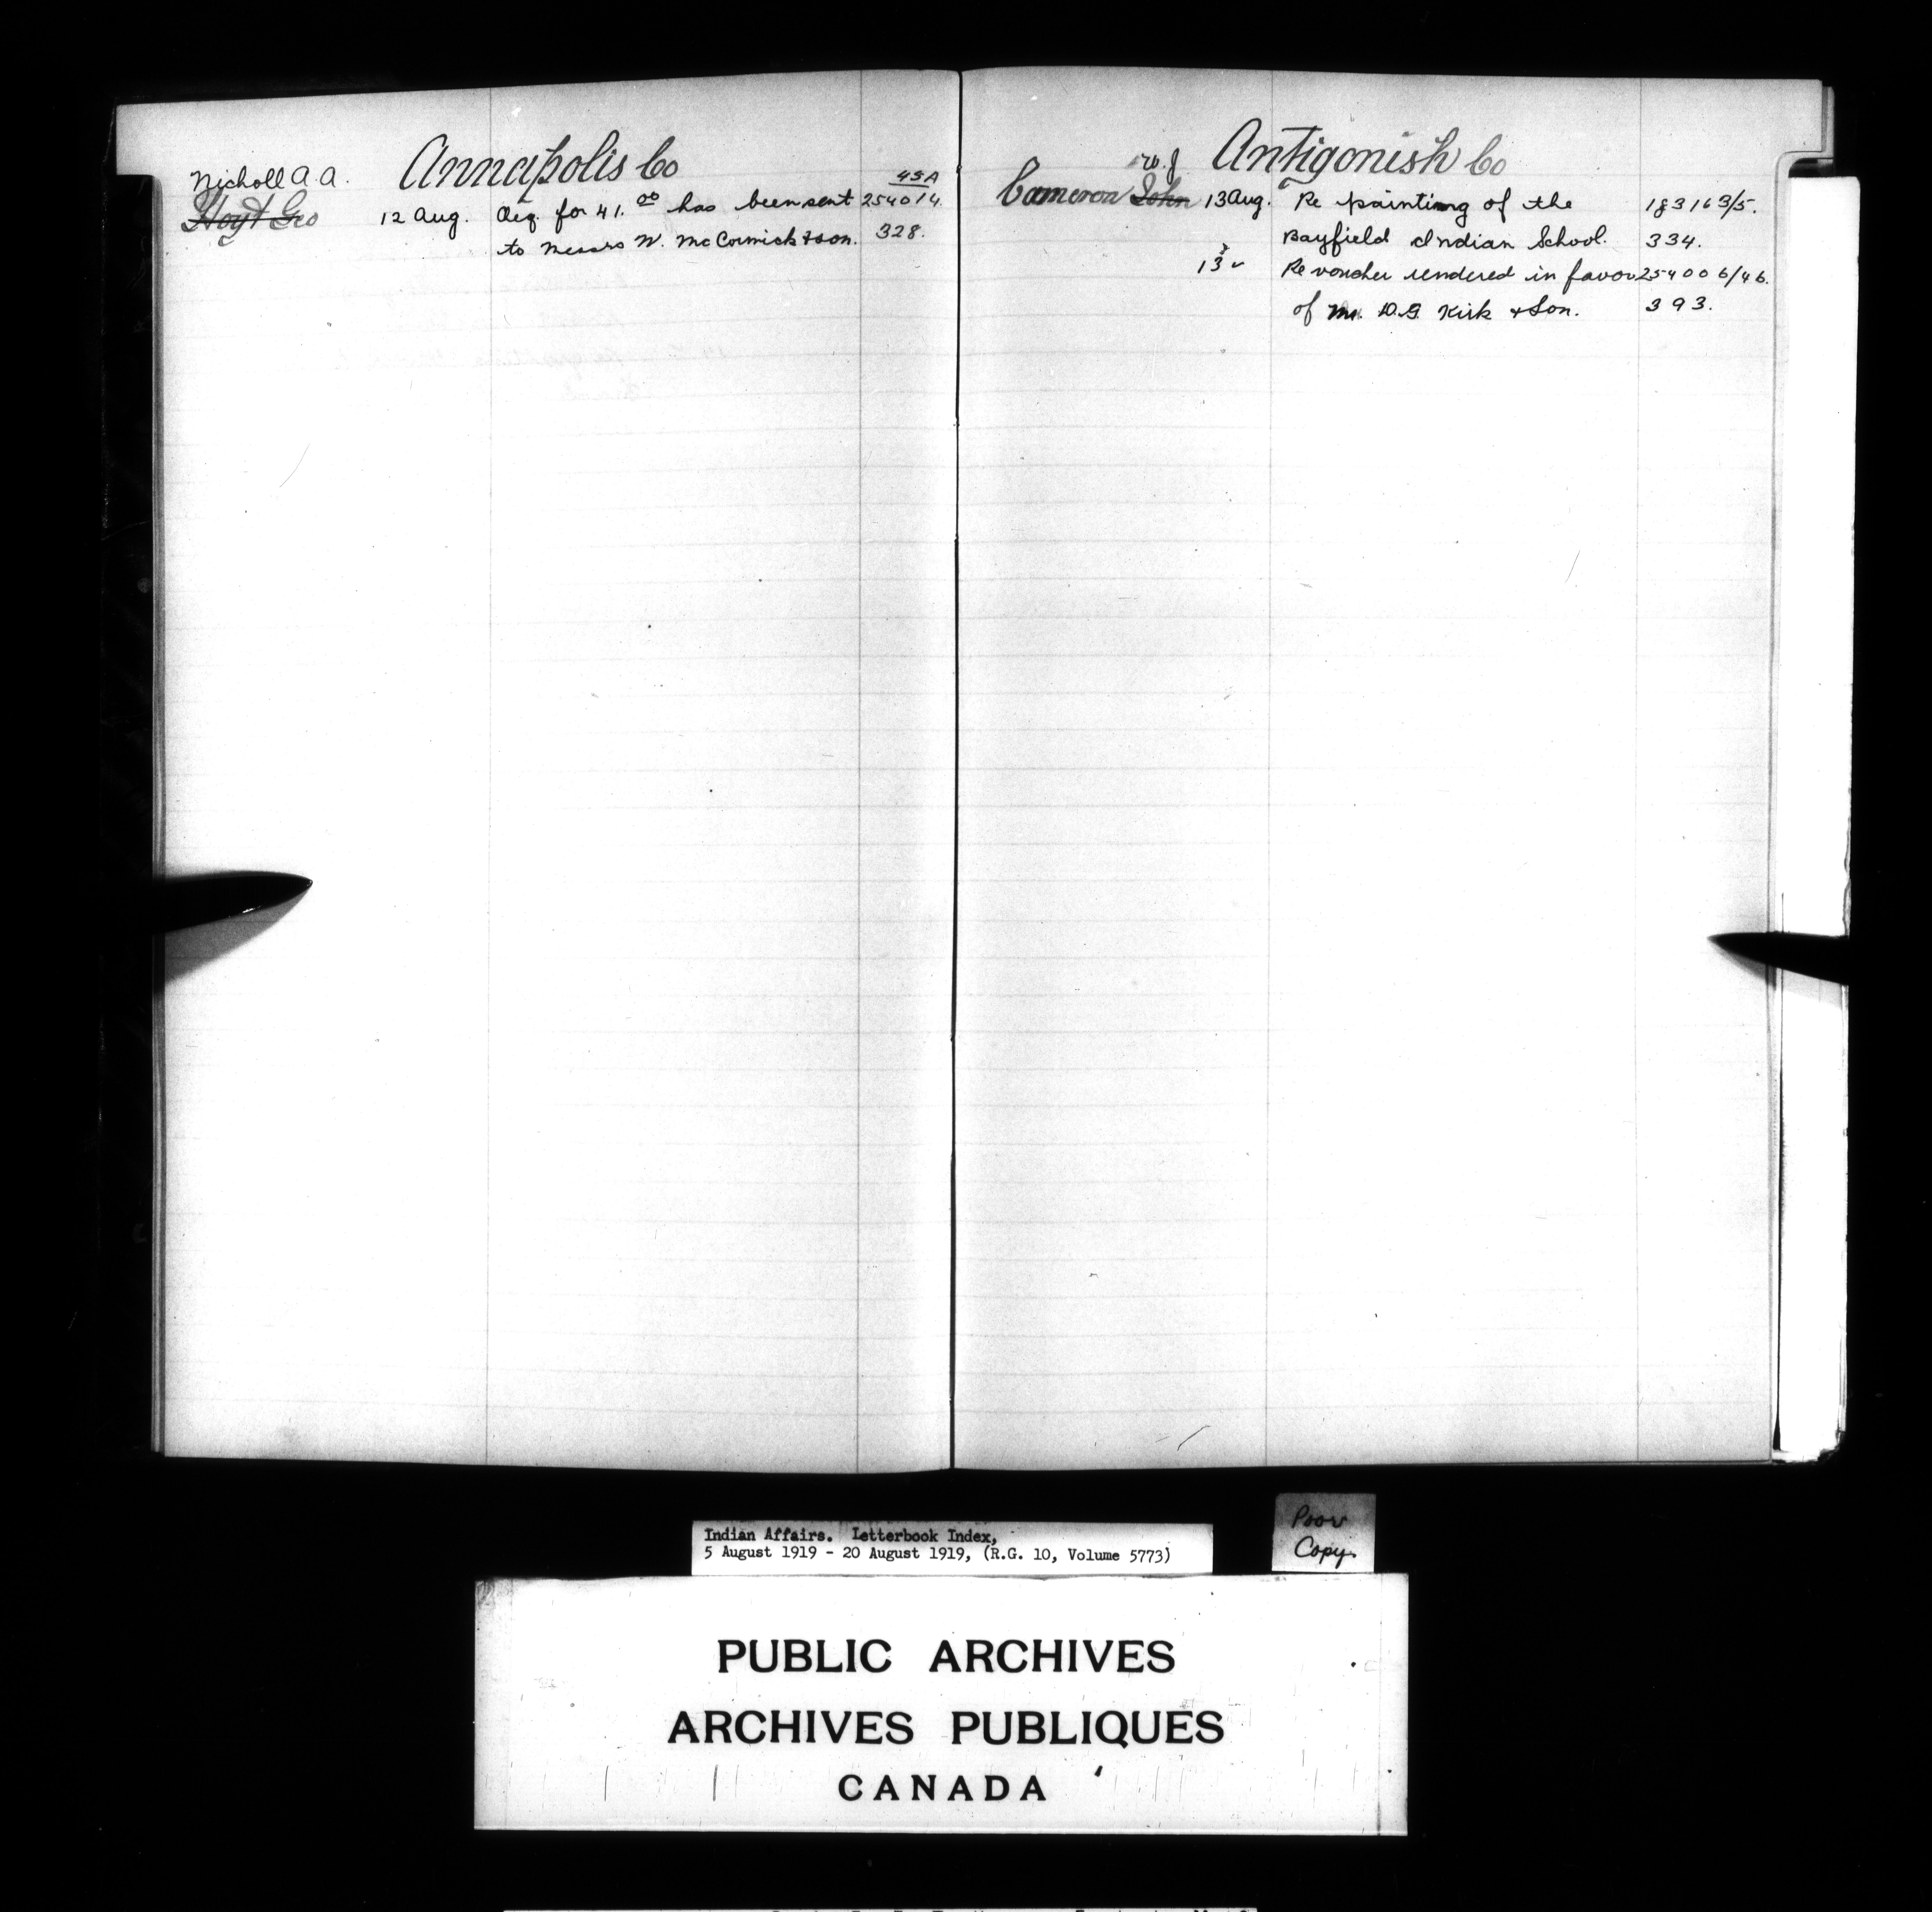 Annapolis Co
Nicholl A. A.
Hoyt Geo
12 Aug. Acq. for 41.00 has been sent 254014.
45A
to Messrs W. McCormick & Son. 328.
Antigonish Co
W. J
Cameron John 13 Aug. Re painting of the 183163/5.
Bayfield Indian School. 334.
13 " Re voucher rendered in favor 254006/46.
of Mr. D.G. Kirk & Son. 393.
Indian Affairs. Letterbook Index,
5 August 1919 - 20 August 1919, (R.G. 10, Volume 5773)
Poor
Copy.
PUBLIC ARCHIVES
ARCHIVES PUBLIQUES
CANADA